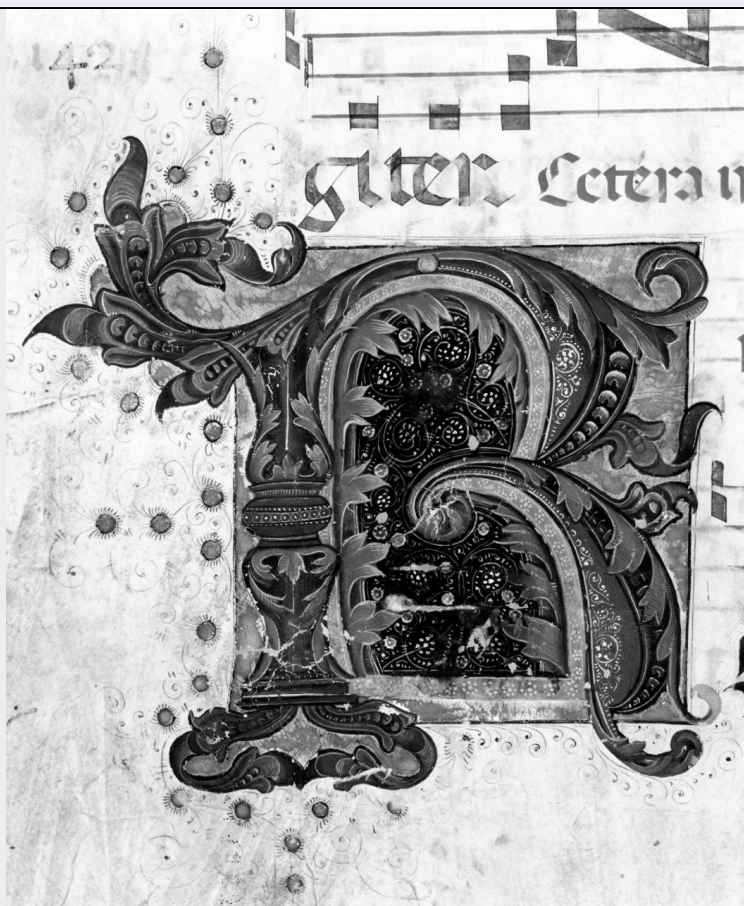 142
giter. Cetera
R